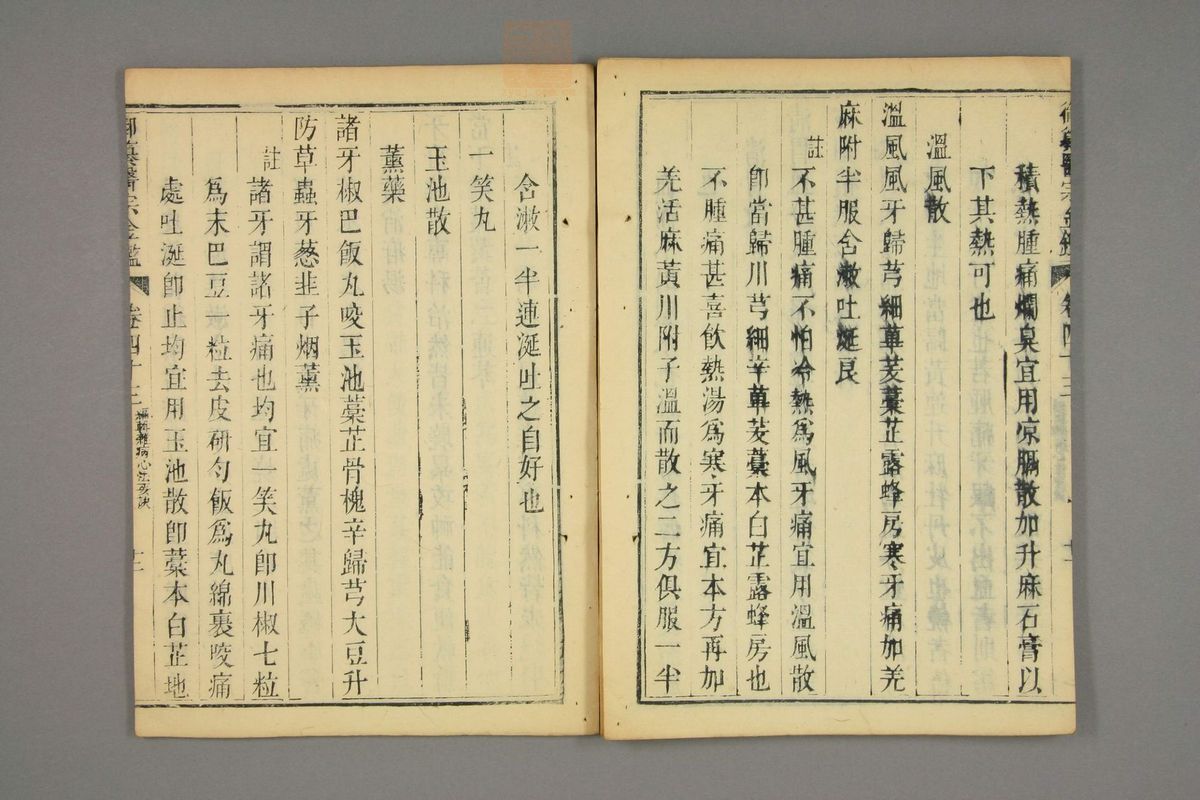 御纂醫宗金鑑 卷四十三
積熱腫痛爛臭宜用凉膈散加升麻石膏以
下其熱可也
溫風散
溫風風牙歸芎細蓽茇藁芷露蜂房寒牙痛加羌
麻附半服含漱吐涎良
註
不甚腫痛不怕冷熱爲風牙痛宜用溫風散
卽當歸川芎細辛蓽茇藁本白芷露蜂房也
不腫痛甚喜飲熱湯爲寒牙痛宜本方再加
羌活麻黃川附子溫而散之二方俱服一半
含漱一半連涎吐之自好也
一笑丸
玉池散
薰藥
諸牙椒巴飯丸咬玉池藁芷骨槐辛歸芎大豆升
防草蟲牙葱韭子烟薰
註
諸牙謂諸牙痛也均宜一笑丸卽川椒七粒
爲末巴豆一粒去皮研勻飯爲丸綿裹咬痛
處吐涎卽止均宜用玉池散卽藁本白芷地
御纂醫宗金鑑 卷四十三 編輯雜病心法要訣